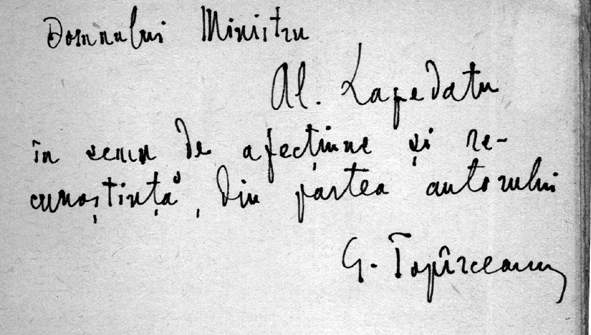 Domnului Ministru
Al. Lapedatu
în semn de afecțiune și re-
cunoștință, din partea autorului
G. Topîrceanu